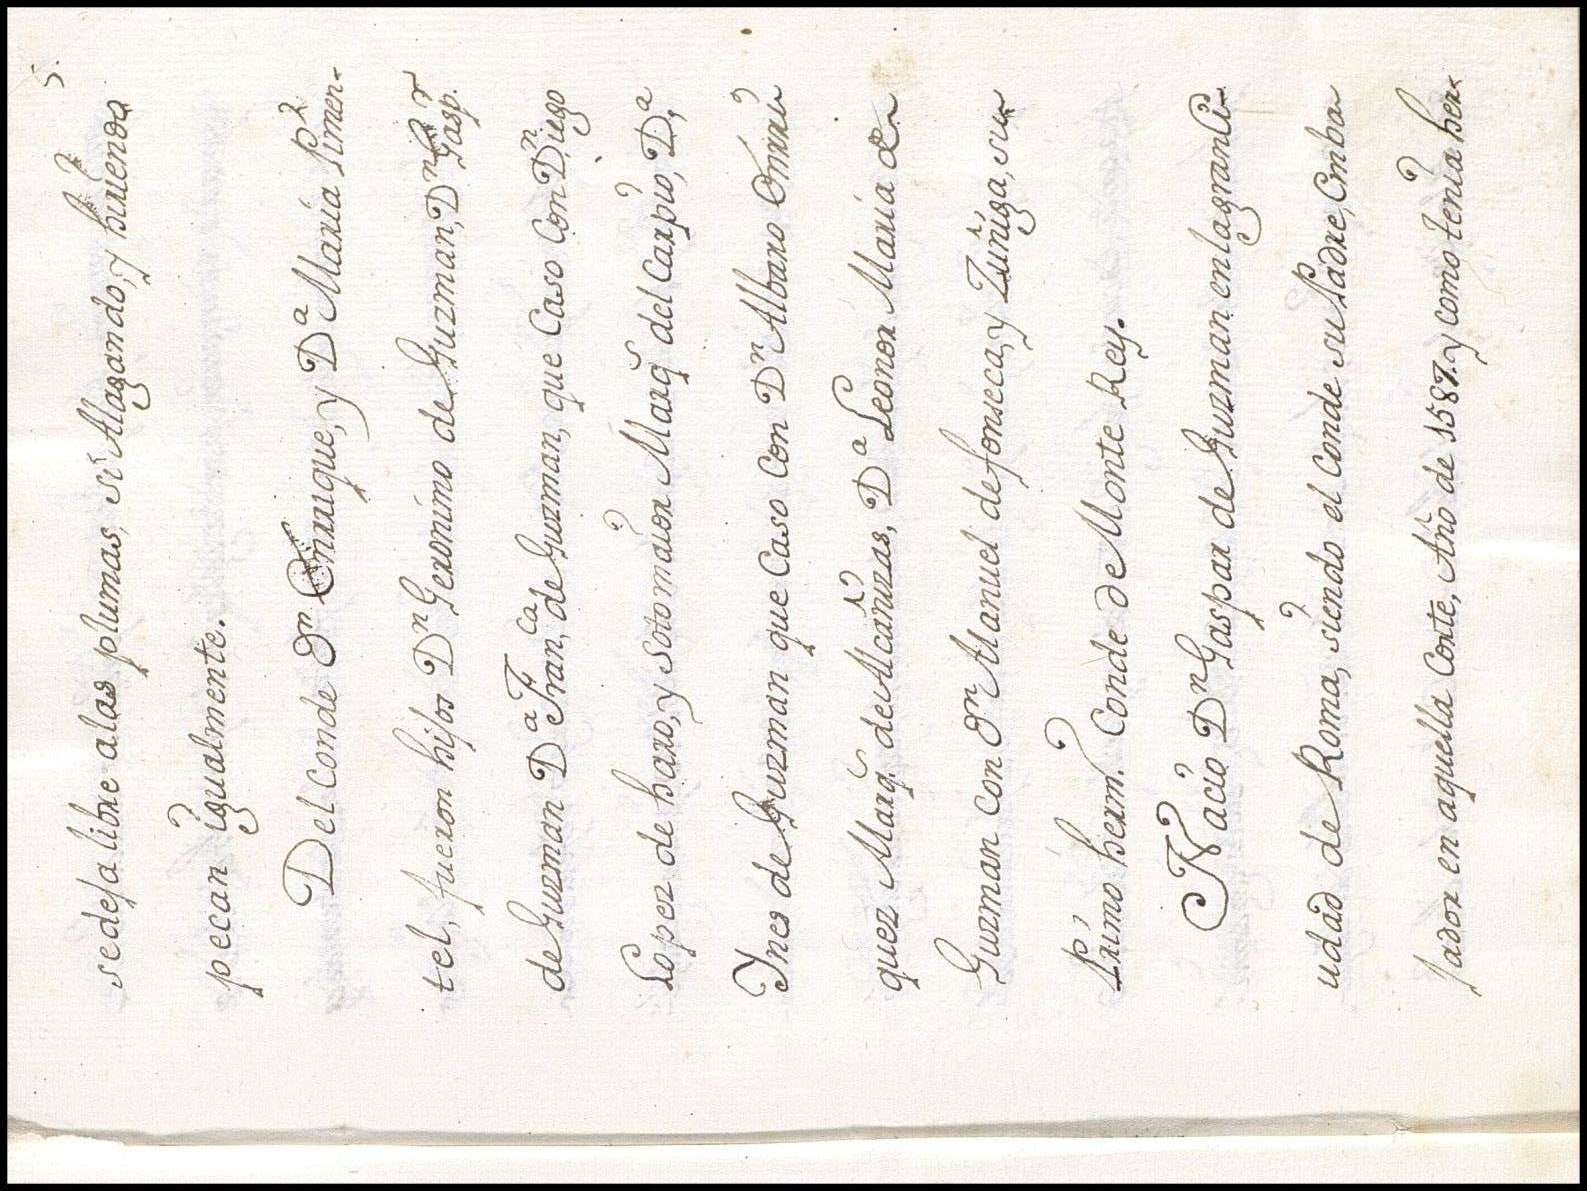 5.
se deja libre alas plumas, si Alagando, y hiriendo
pecan igualmente.
Del Conde Dn Enrrique, y Da Maria Pimen-
tel, fueron hijos Dn Geronimo de Guzman, Dn Gasp.r
de Guzman Da Fran.ca de Guzman, que Caso Con Dn Diego
Lopez de haro, y Sotomaior Marqs del Carpio, Da
Ynes de Guzman que Caso Con Dn Albaro Enrri
quez Marqs. de Alcañizas, Da Leonor Maria de
Guzman Con Dn Manuel de fonseca, y Zuñiga, su
Primo herm.o Conde de Monte Rey.
Nacio Dn Gaspar de Guzman en la gran Ci-
udad de Roma, siendo el Conde su Padre, Emba
jador en aquella Corte, Año de 1587. y como tenia her-